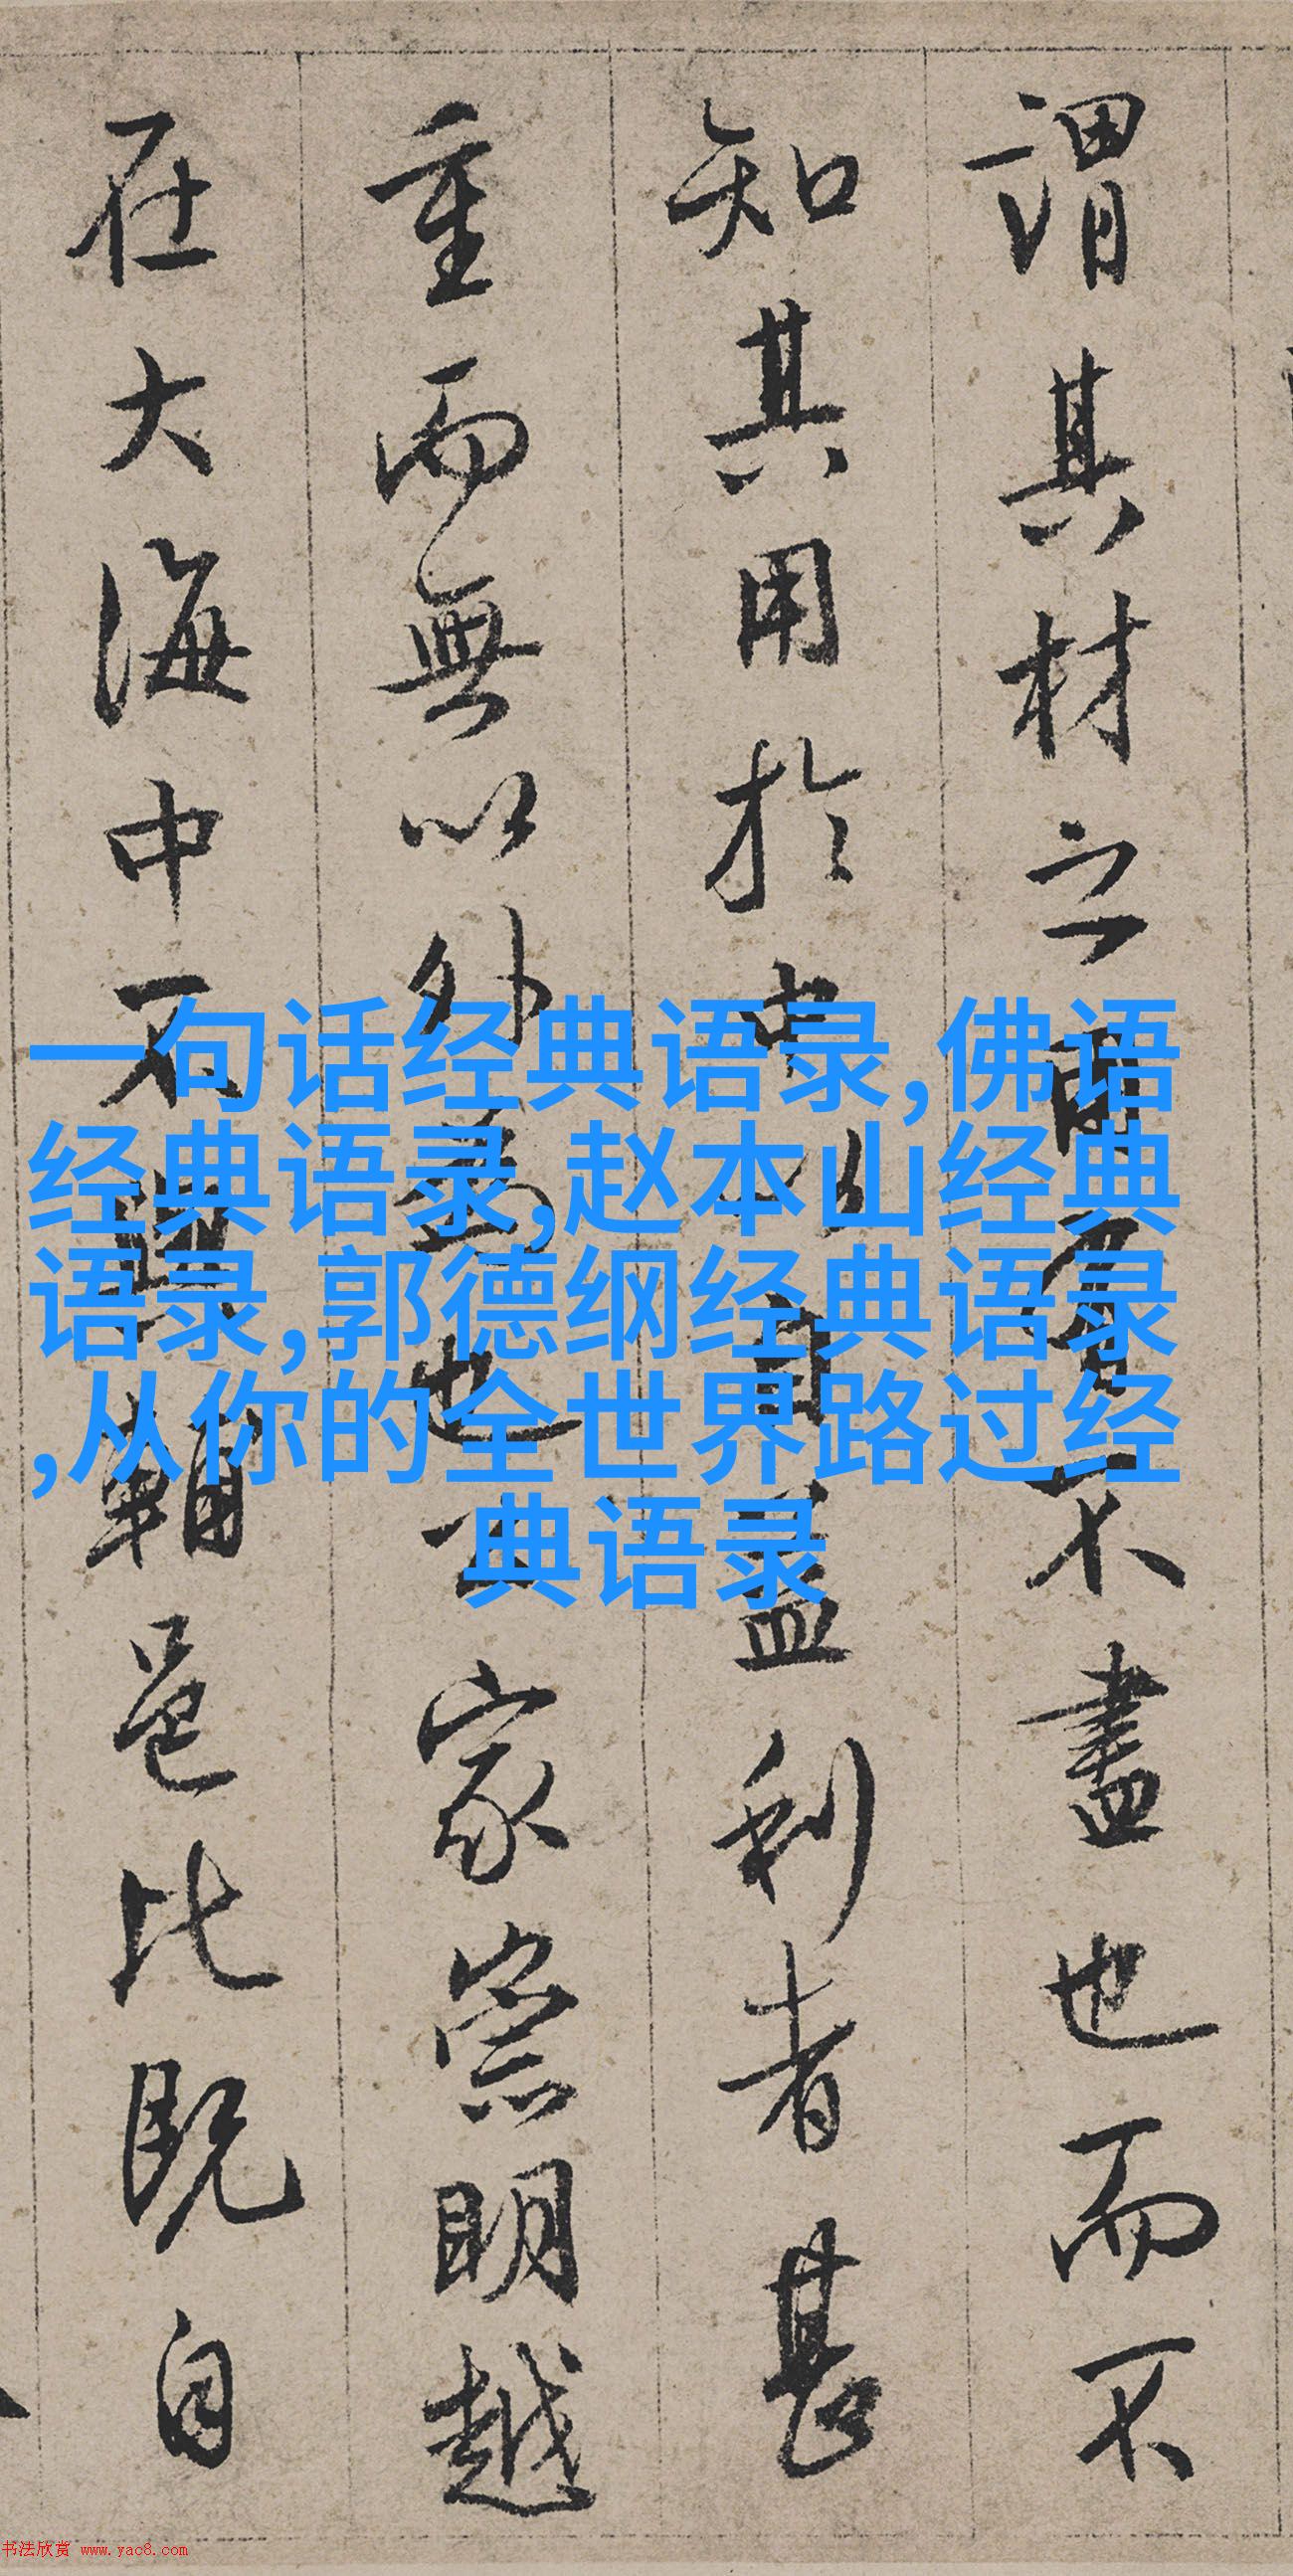 一句话经典语录,佛语
经典语录,赵本山经典
语录,郭德纲经典语录
,从你的全世界路过经
典语录
谓其材之用不尽也而不
知其用於中以自益利者甚
重而無以外为也士家崇明越
在大海中不辅邑比既自
书法欣赏 www.yac8.com